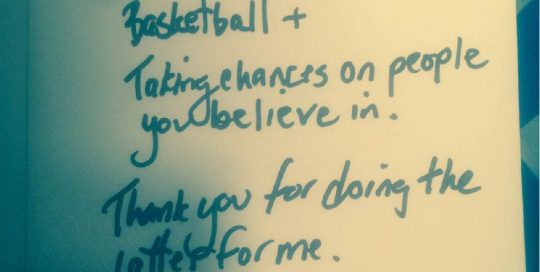 Basketball +
Taking chances on people
you believe in.
Thank you for doing the
latter for me.